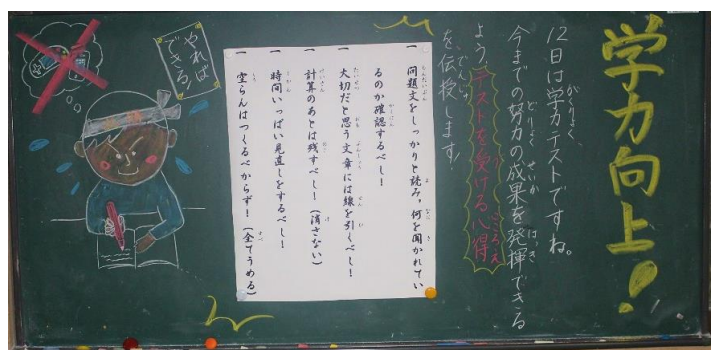 学力向上！
12日は学力テストですね。
今までの努力の成果を発揮できる
よう、テストを受ける心得
を、伝授します！
一 問題文をしっかりと読み、何を聞かれてい
るのか確認するべし！
一 大切だと思う文章には線を引くべし！
一 計算のあとは残すべし！（消さない）
一 時間いっぱい見直しをするべし！
一 空らんはつくるべからず！（全てうめる）
やれば
できる